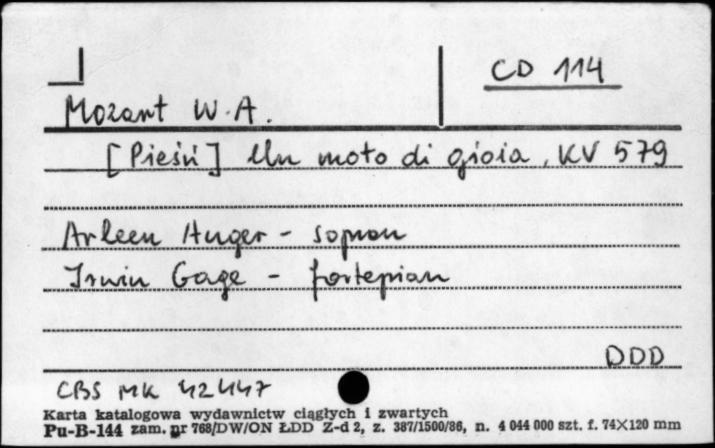 CD 114
Mozart W.A.
[Pieśń] Un moto di gioia, KV 579
Arleen Auger - sopran
Irwin Gage - fortepian
DDD
CBS MK 42447
Karta katalogowa wydawnictw ciągłych i zwartych
Pu-B-144 zam. nr 768/DW/ON ŁDD Z-d 2, z. 387/1500/86, n. 4 044 000 szt. f. 74×120 mm